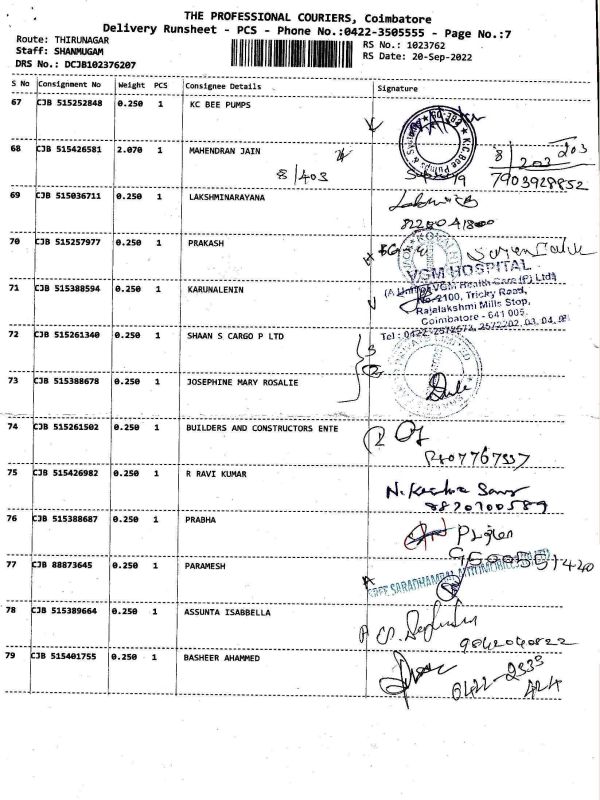 THE PROFESSIONAL COURIERS, Coimbatore
Delivery Runsheet - PCS - Phone No.:0422-3505555 - Page No.:7
Route: THIRUNAGAR
Staff: SHANMUGAM
DRS No.: DCJB102376207
RS No.: 1023762
RS Date: 20-Sep-2022
S No Consignment No Weight PCS Consignee Details Signature
67 CJB 515252848 0.250 1 KC BEE PUMPS
68 CJB 515426581 2.070 1 MAHENDRAN JAIN
8/403
8/203 203
7903928852
69 CJB 515036711 0.250 1 LAKSHMINARAYANA
70 CJB 515257977 0.250 1 PRAKASH
VGM HOSPITAL
(A Unit of VGM Health Care (P) Ltd)
No-2100, Trichy Road,
Rajalakshmi Mills Stop,
Coimbatore - 641 005.
71 CJB 515388594 0.250 1 KARUNALENIN
72 CJB 515261340 0.250 1 SHAAN S CARGO P LTD
73 CJB 515388678 0.250 1 JOSEPHINE MARY ROSALIE
74 CJB 515261502 0.250 1 BUILDERS AND CONSTRUCTORS ENTE
75 CJB 515426982 0.250 1 R RAVI KUMAR
8870700589
76 CJB 515388687 0.250 1 PRABHA
9500551420
77 CJB 88873645 0.250 1 PARAMESH
78 CJB 515389664 0.250 1 ASSUNTA ISABBELLA
9842040822
79 CJB 515401755 0.250 1 BASHEER AHAMMED
0422-2333
424